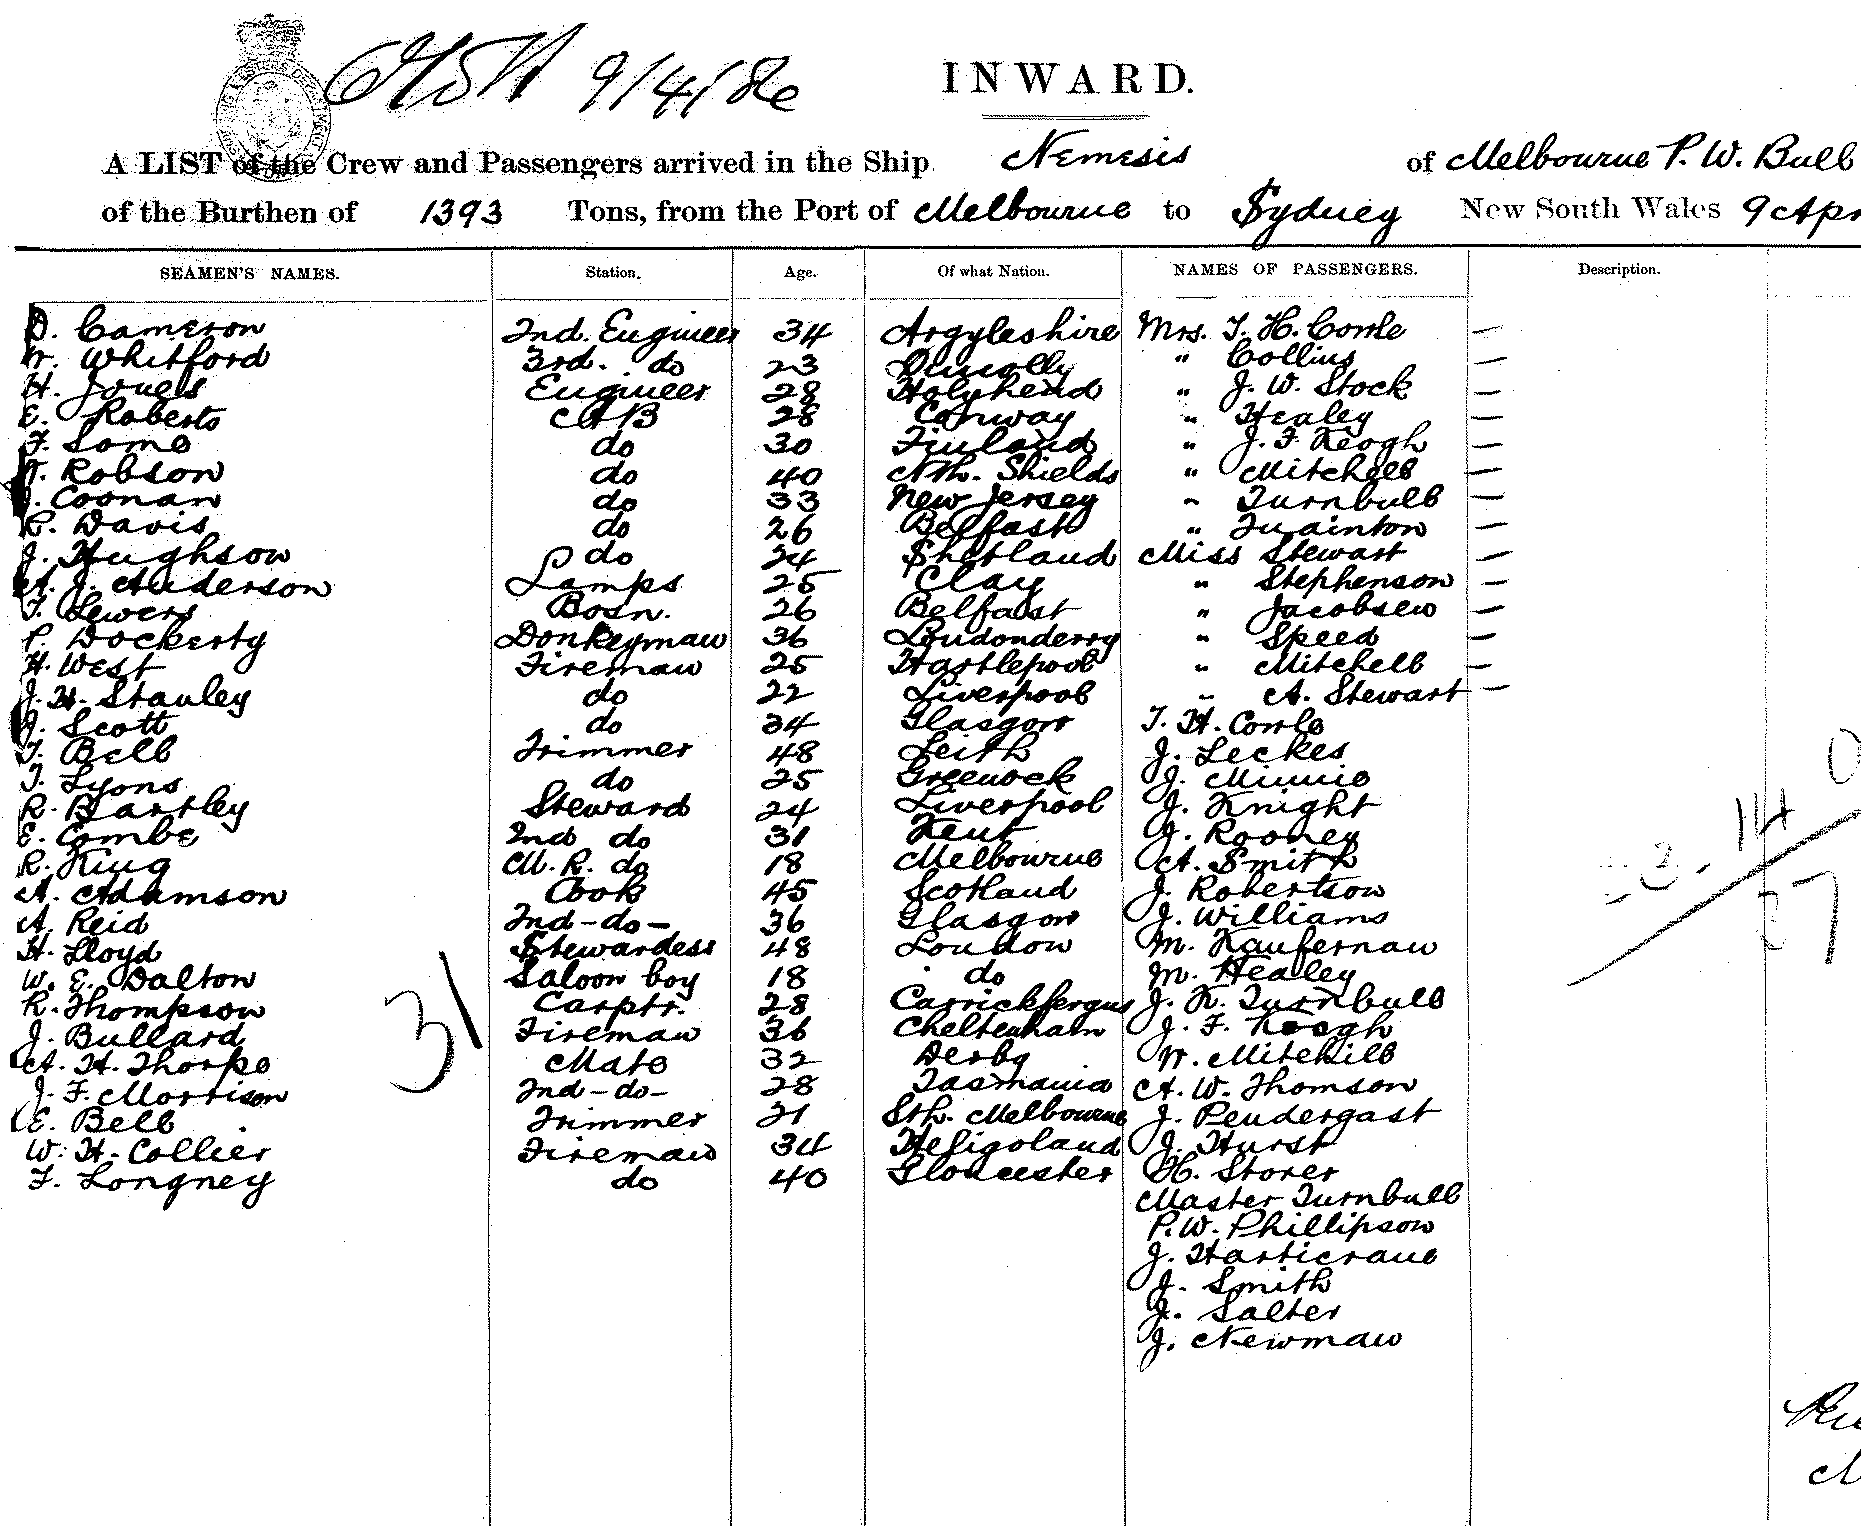 9/4/86
INWARD.
A LIST of the Crew and Passengers arrived in the Ship Nemesis of Melbourne P. W. Bull
of the Burthen of 1393 Tons, from the Port of Melbourne to Sydney New South Wales 9 Apr
SEAMEN'S NAMES. Station. Age. Of what Nation. NAMES OF PASSENGERS. Description.
D. Cameron 2nd. Engineer 34 Argyleshire Mrs. T. H. Cowle —
W. Whitford 3rd. do 23 Dunolly " Collins —
H. Jones Engineer 28 Holyhead " J. W. Stock —
E. Roberts AB 28 Conway " Healey —
F. Lomo do 30 Finland " J. F. Keogh —
T. Robson do 40 Nth. Shields " Mitchell —
J. Coonan do 33 New Jersey " Turnbull —
R. Davis do 26 Belfast " Quainton —
J. Hughson do 24 Shetland Miss Stewart —
A. J. Anderson Lamps 25 Clay " Stephenson —
T. Sewers Bosn. 26 Belfast " Jacobsen —
P. Dockerty Donkeyman 36 Londonderry " Speed —
H. West Fireman 25 Hartlepool " Mitchell —
J. H. Stanley do 22 Liverpool " A. Stewart —
J. Scott do 34 Glasgow T. H. Cowle
T. Bell Trimmer 48 Leith J. Leckes
T. Lyons do 25 Greenock J. Minnie
R. Bartley Steward 24 Liverpool J. Knight
E. Combe 2nd do 31 Kent J. Rooney
R. King M. R. do 18 Melbourne A. Smith
A. Adamson Cook 45 Scotland J. Robertson
A. Reid 2nd -do- 36 Glasgow J. Williams
H. Lloyd Stewardess 48 London M. Kaufernan
W. E. Dalton Saloon boy 18 do M. Healey
R. Thompson Carptr. 28 Carrickfergus J. K. Turnbull
J. Bullard Fireman 36 Cheltenham J. F. Keogh
A. H. Thorpe Mate 32 Derby W. Mitchell
J. F. Morrison 2nd -do- 28 Tasmania A. W. Thomson
E. Bell Trimmer 21 Sth. Melbourne J. Pendergast
W. H. Collier Fireman 34 Heligoland J. Hurst
F. Longney do 40 Gloucester H. Storer
Master Turnbull
P. W. Phillipson
J. Harticrane
J. Smith
J. Salter
J. Newman
31
14